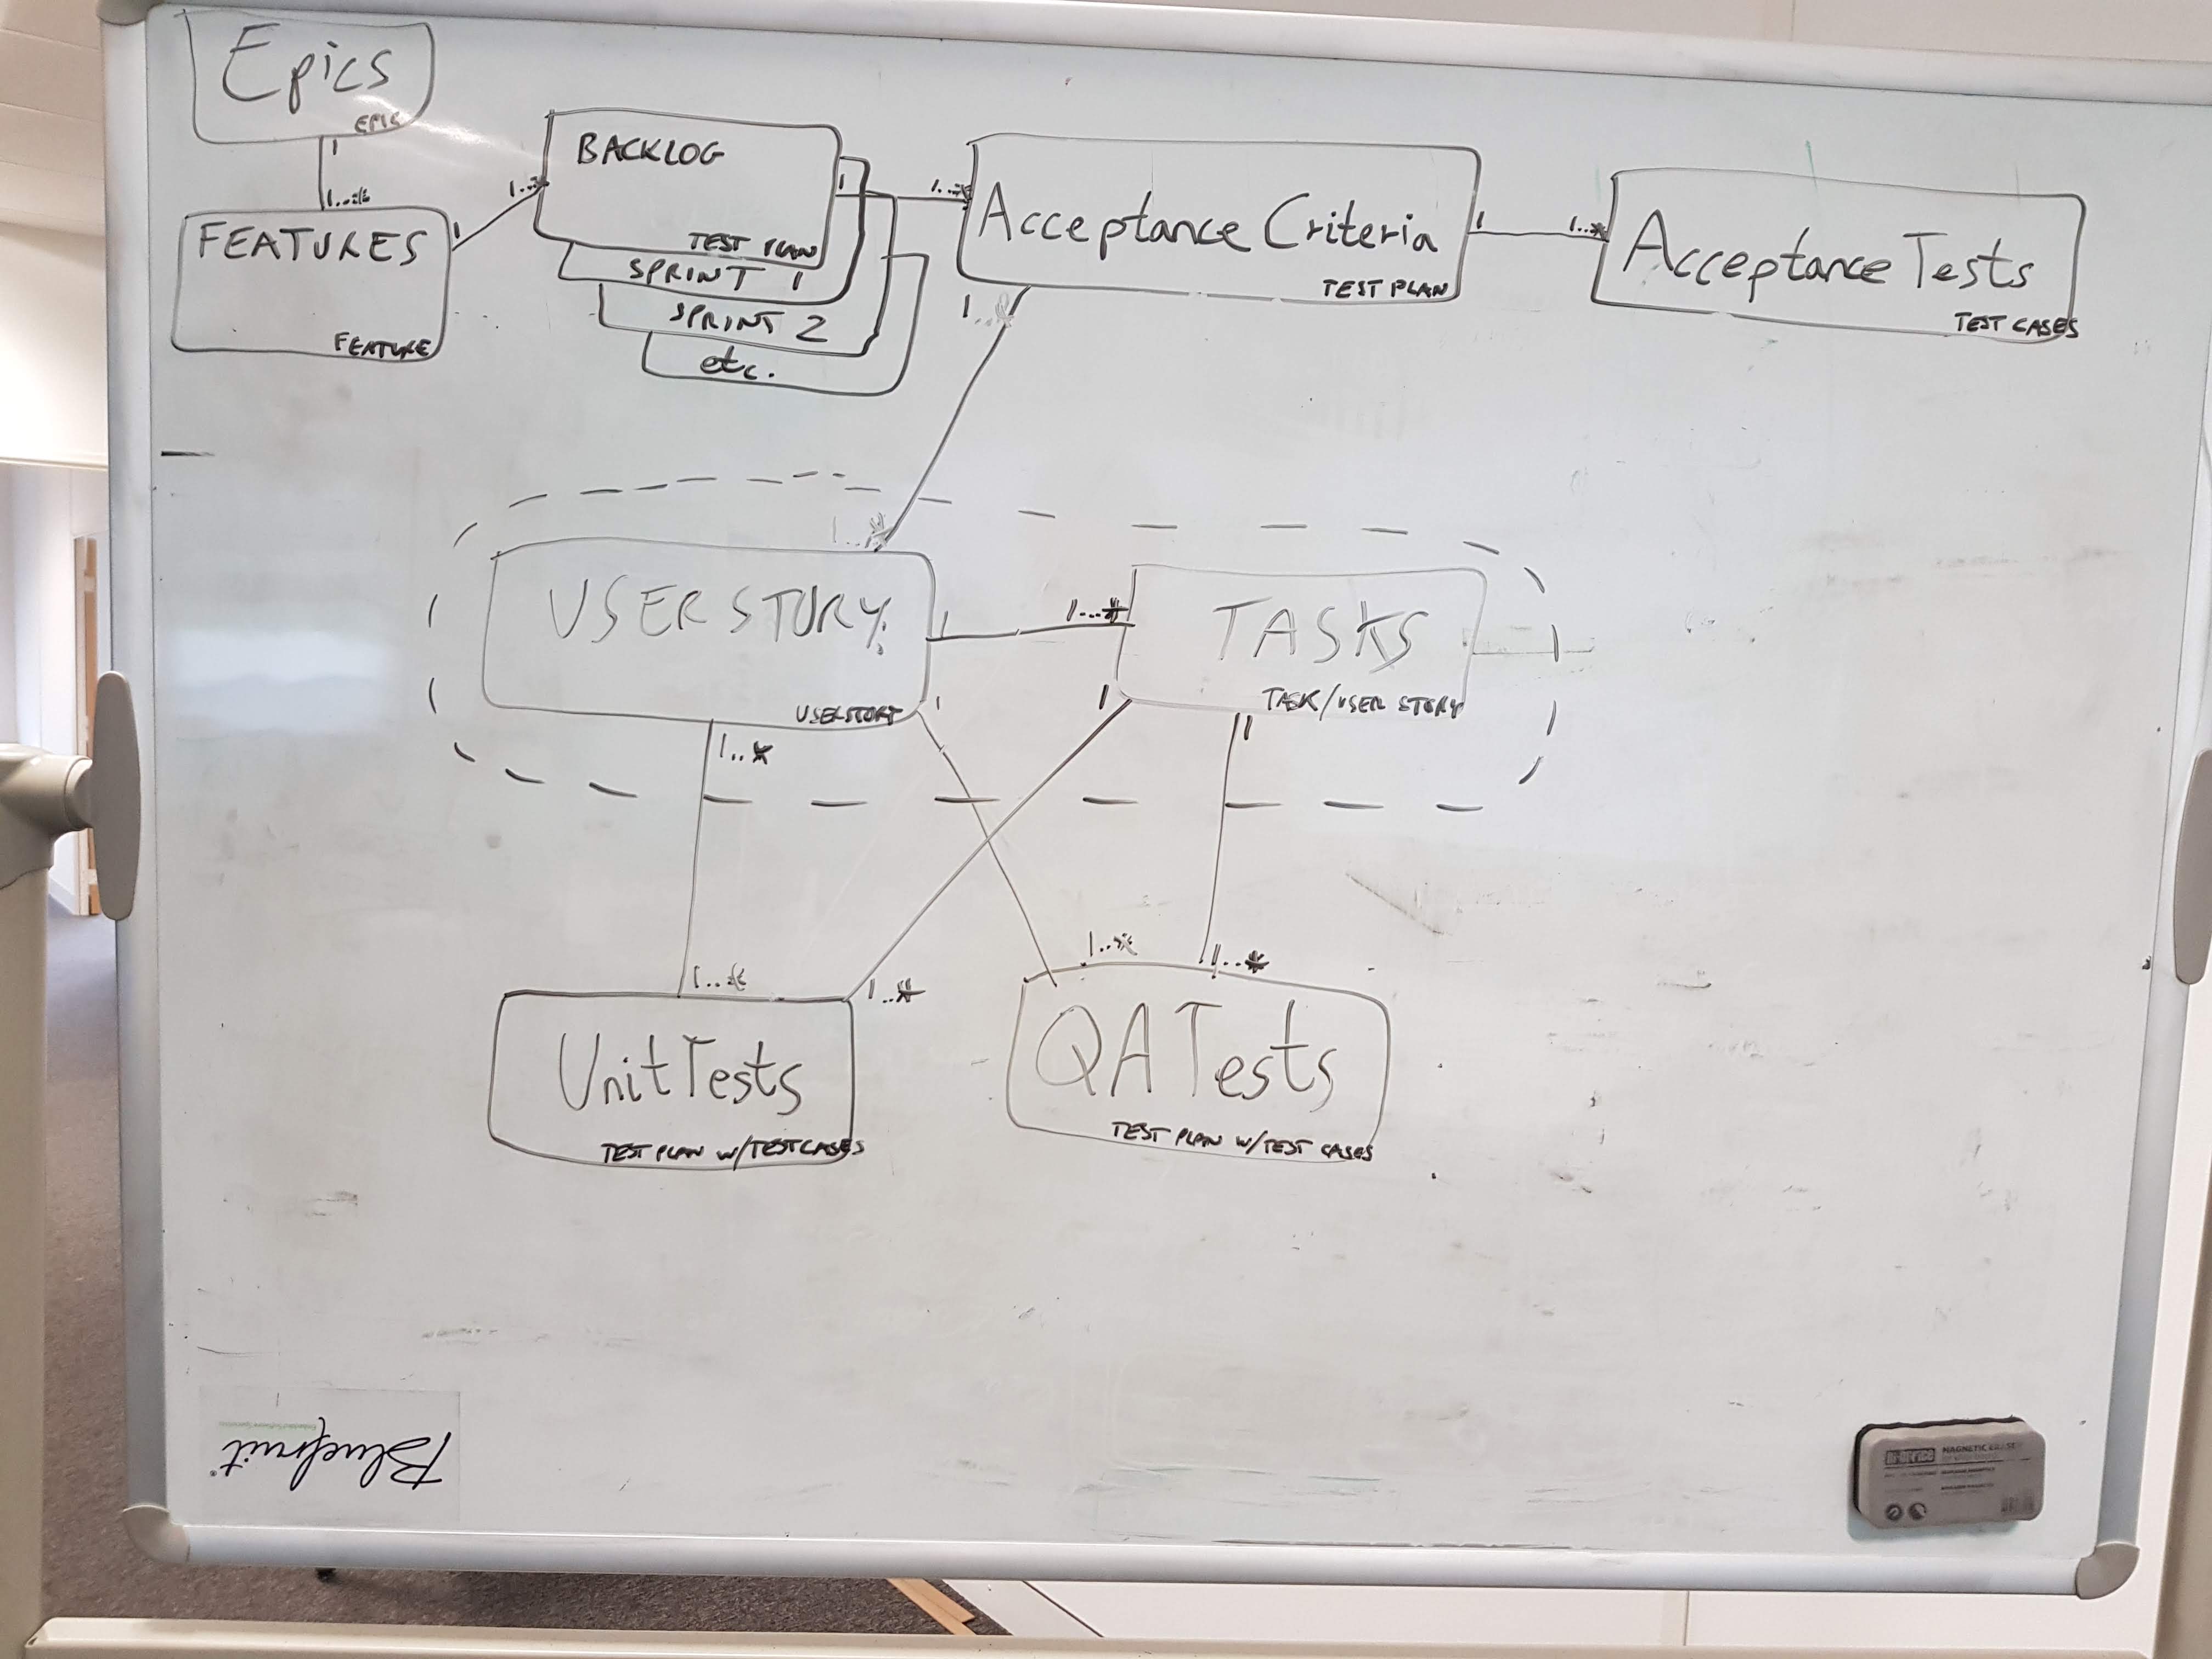 Epics
EPIC
1
1..*
FEATURES
FEATURE
1
1..*
BACKLOG
TEST PLAN
SPRINT 1
SPRINT 2
etc.
1
1..*
Acceptance Criteria
TEST PLAN
1
1..*
Acceptance Tests
TEST CASES
1..*
1..*
USER STORY
USER STORY
1
1...*
TASKS
TASK/USER STORY
1..*
1
1
1
1..*
1..*
1..*
1..*
Unit Tests
TEST PLAN w/TESTCASES
QA Tests
TEST PLAN w/TEST CASES
Bluefruit
MAGNETIC ERASER